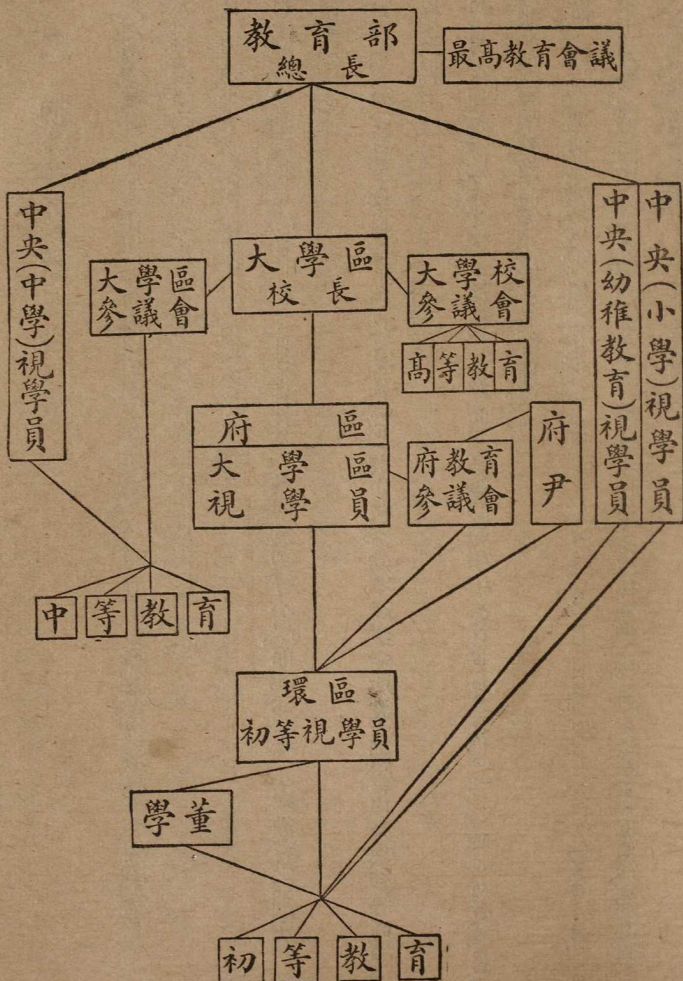 教育部
總長
最高教育會議
中央(中學)視學員
大學區
參議會
大學區
校長
大學校
參議會
高等教育
中央(小學)視學員
中央(幼稚教育)視學員
府區
大學區
視學員
府教育
參議會
府尹
中等教育
環區
初等視學員
學董
初等教育